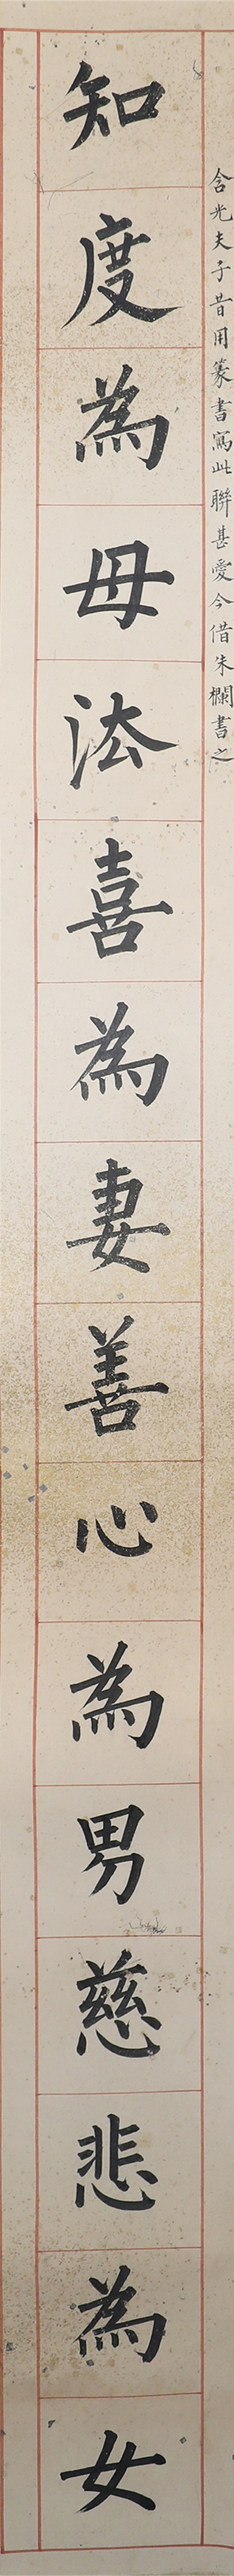 含光夫子昔用篆書寫此聯甚愛今借朱欄書之
知度為母法喜為妻善心為男慈悲為女